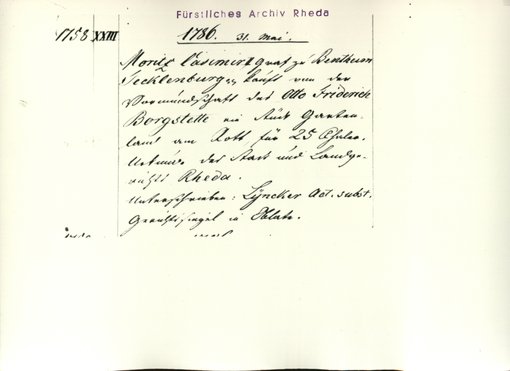 Fürstliches Archiv Rheda
1758 XXIII 1786. 31. Mai.
Moritz Casimir Graf zu Bentheim
Tecklenburg kauft von der
Vormundschaft des Otto Friderich
Borgstette ein Stück Garten-
land am Rott für 25 Thaler.
Urkunde des Stadt und Landge-
richts Rheda.
Unterschrieben: Lyncker Act. subst.
Gerichtssiegel in Oblate.